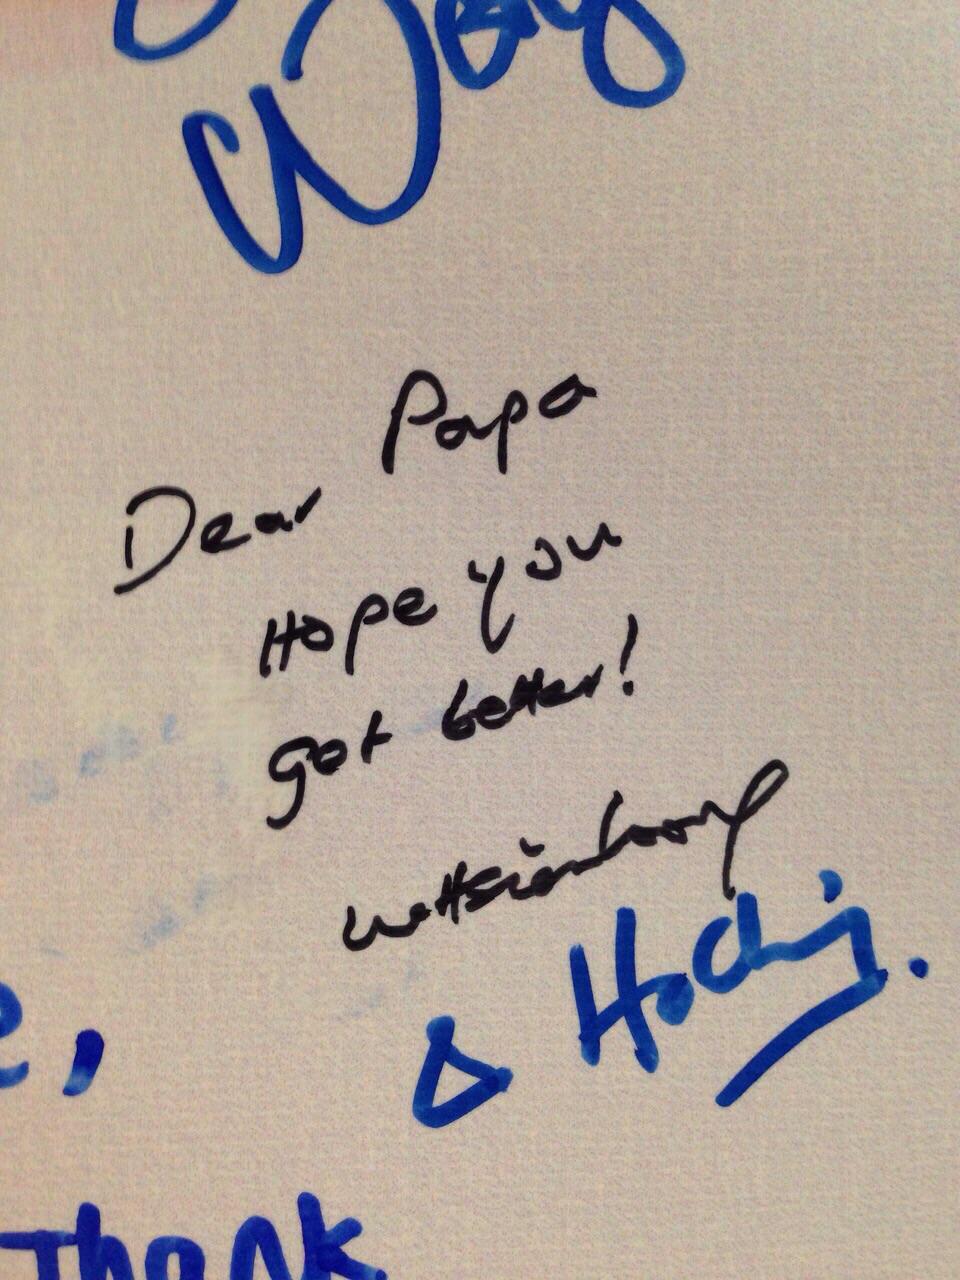 Dear Papa
Hope you
got better!
& Ho Ching.
Thank